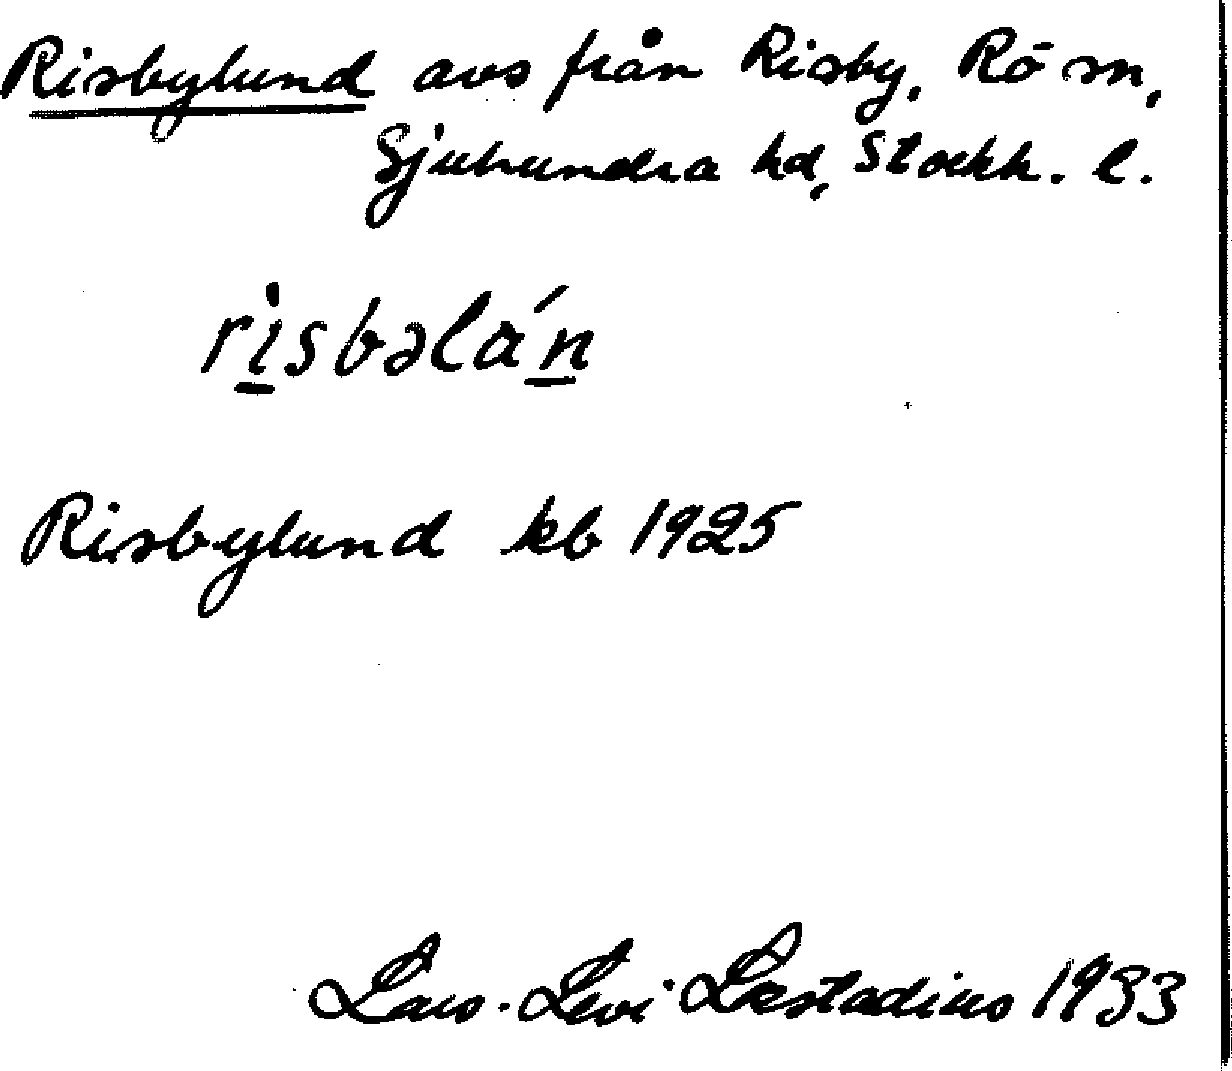 Risbylund avs från Risby, Rö sn,
Sjuhundra hd, Stockh. l.
rìsbəlán
Risbylund kb 1925
Lars-Levi Læstadius 1933